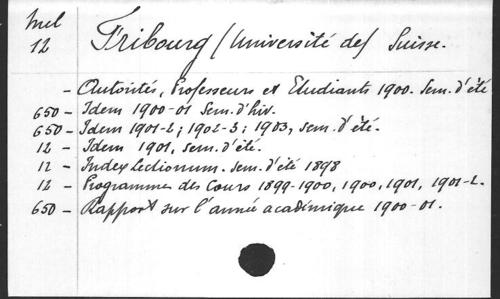 Mel
12
Fribourg (Université de) Suisse.
- Autorités, Professeurs et Etudiants 1900. Sem. d'été
650 - Idem 1900-01 Sem. d'hiv.
650 - Idem 1901-2; 1902-3; 1903, sem. d'été.
12 - Idem 1901, sem. d'été.
12 - Index lectionum. sem. d'été 1898
12 - Programme des Cours 1899-1900, 1900, 1901, 1901-2.
650 - Rapport sur l'année académique 1900-01.